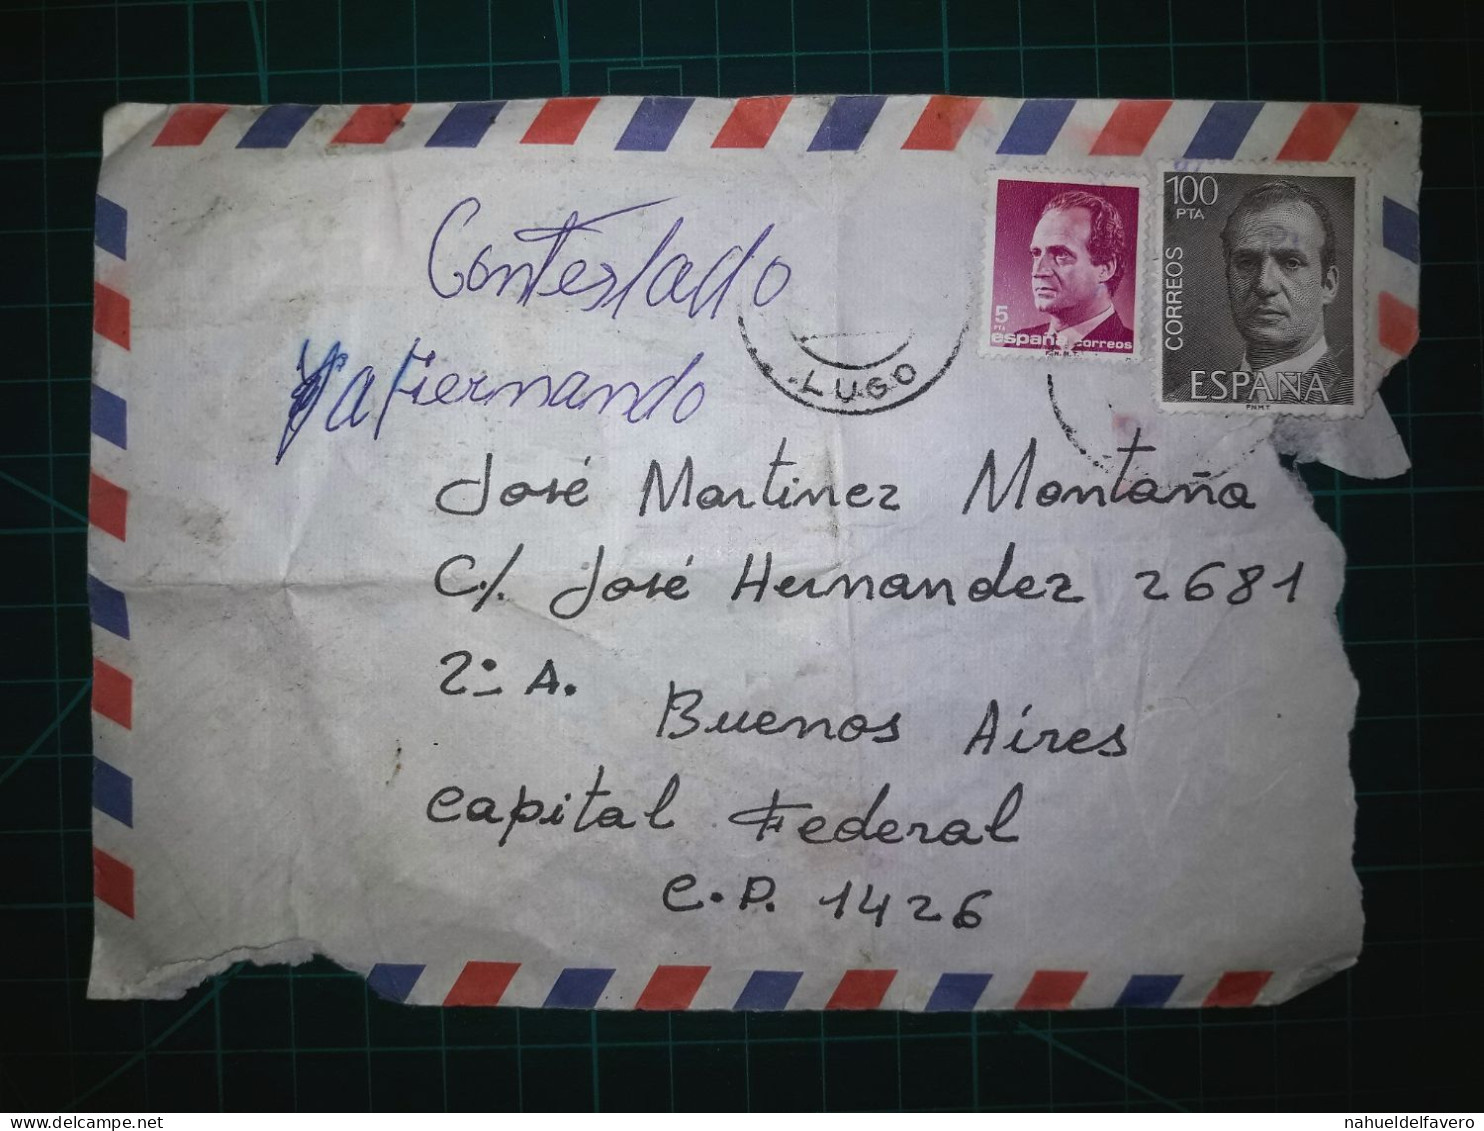 Contestado
Ya Fernando
100
PTA
CORREOS
ESPAÑA
F.N.M.T
5
PTA
españa correos
F.N.M.T.
LUGO
José Martinez Montaña
C/. José Hernandez 2681
2º A.
Buenos Aires
Capital Federal
C.P. 1426
delcampe.net
nahueldelfavero